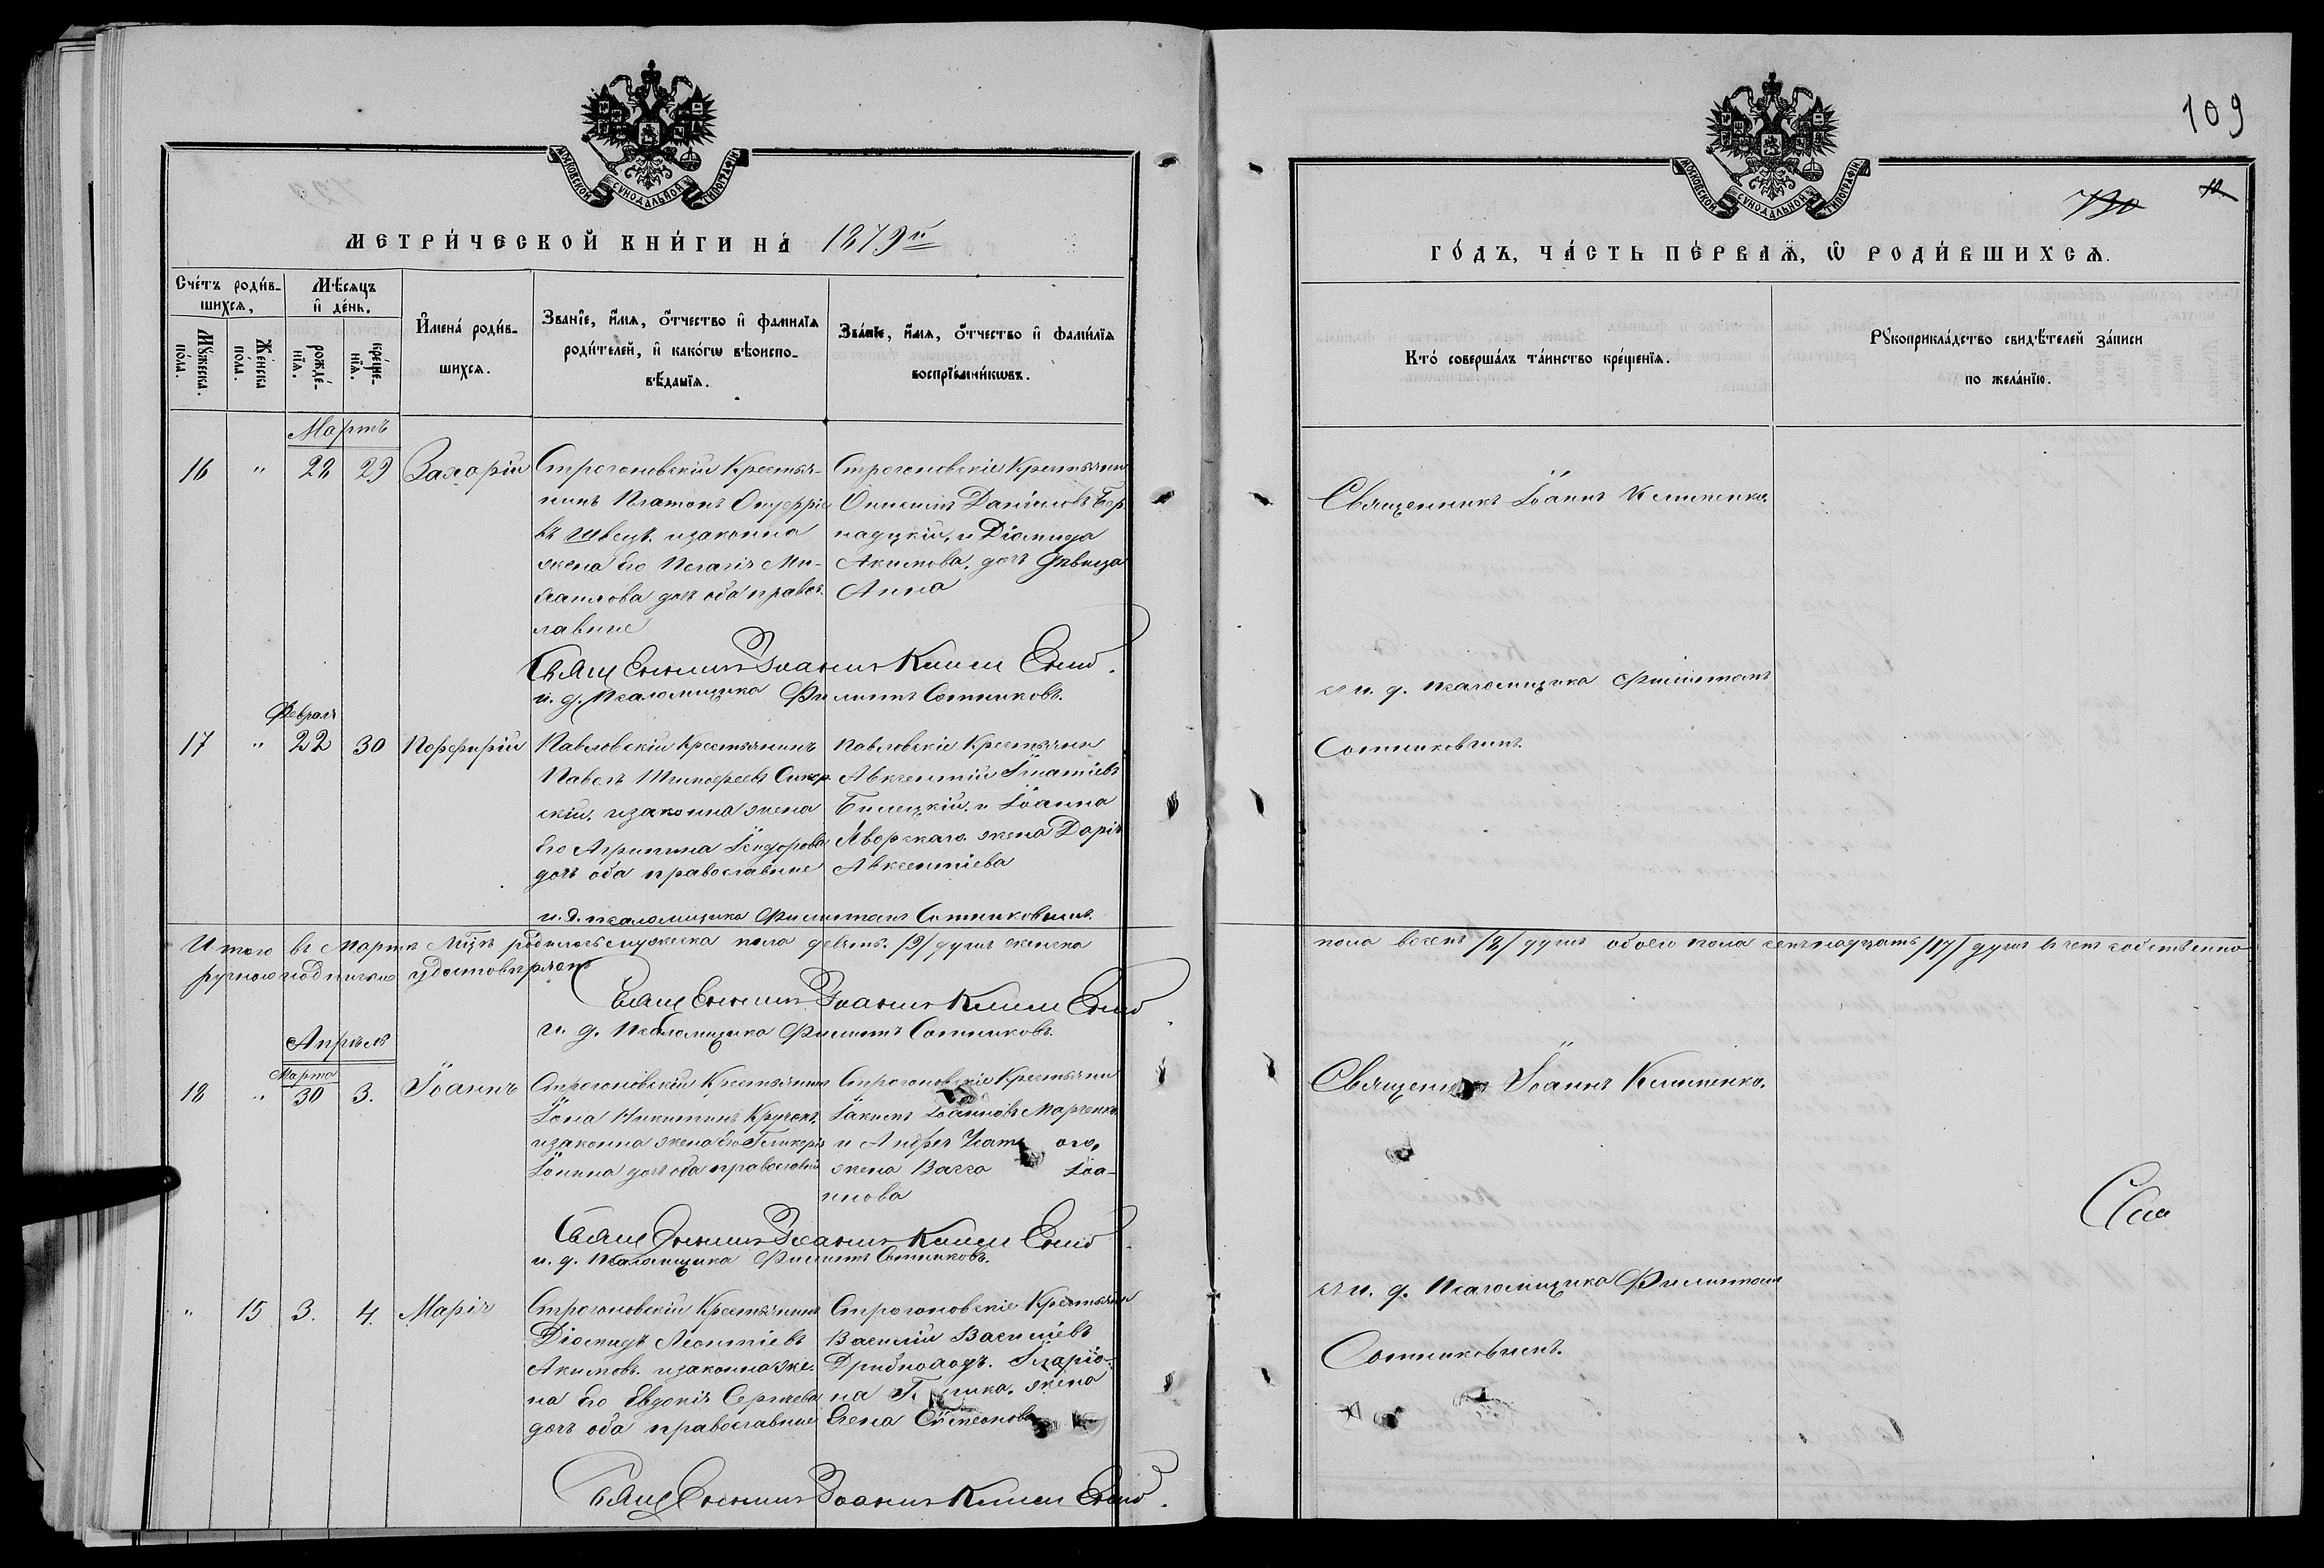 109
730
МОСКОВСКОЙ СѴНОДАЛЬНОЙ ТИПОГРАФІИ
МЕТРИ́ЧЕСКОЙ КНИ́ГИ НА́ 1879й
Сче́тъ роди́в-
шихсѧ,
Мꙋ́жеска по́ла.
Же́нска по́ла.
Мѣ́сѧцъ
и҆ де́нь.
рожде́-
нїѧ.
креще́-
нїѧ.
И҆мена̀ роди́в-
шихсѧ.
Зва́нїе, и҆́мѧ, ѻ҆́тчество и҆ фами́лїѧ
роди́телей, и҆ како́гѡ вѣроиспо-
вѣ́данїѧ.
Зва́нїе, и҆́мѧ, ѻ҆́тчество и҆ фами́лїѧ
воспрїе́мникѡвъ.
Мартъ
16 " 28 29 Захарій
Строгоновскій Крестья-
нинъ Платонъ Онуфріе
въ Швецъ. изаконна
жена Его Пелагія Ми-
хаилова дочъ оба правос.
лавные
Строгоновскіе Крестьяни
Онисимъ Даніиловъ Бер.
надцкій, и Діомида
Акимова, дочъ Дѣвица
Анна
Священникъ Іоаннъ Клименко.
и. д. Псаломщика Филиппъ Сотниковъ.
Февраля
17 " 22 30 Порфирій
Павловскій Крестьянинъ
Павелъ Тимофеевъ
скій, изаконна жена
Его Агрипина Ісидорова
дочъ оба православные
Павловскіе Крестьяни
Авксентій Игнатіевъ
Билецкій, и Іоанна
Яворскаго. жена Дарія
Авксентіева
и. д. псаломщика Филиппъ Сотниковичъ.
Итого въ Мартѣ Мѣцѣ родилось мужеска пола девять /9/ душъ женска
ручною подписью удостовѣряемъ
Священникъ Іоаннъ Клименко
и. д. Псаломщика Филиппъ Сотниковъ.
Апрѣль
Марта
18 " 30 3. Іоаннъ
Строгоновскій Крестьянинъ
Іона Никитинъ Кручокъ,
изаконна жена Его Гликерія
Іонина дочъ оба православны
Строгоновскіе Крестьяни
Іакимъ Іоанновъ Марченко
и Андрея
жена Васса Іоа-
ннова
Священникъ Іоаннъ Клименко
и. д. Псаломщика Филиппъ Сотниковъ.
" 15 3. 4. Марія
Строгоновскій Крестьянинъ
Діомидъ Леонтіевъ
Акимовъ. изаконна же-
на Его Евдокія Сергѣева
дочъ оба православные
Строгоновскіе Крестьяни
Василій Васильевъ
Иларіо-
на жена
Елена Симеонова
Священникъ Іоаннъ Клименко.
МОСКОВСКОЙ СѴНОДАЛЬНОЙ ТИПОГРАФІИ
ГО́ДЪ, ЧА́СТЬ ПЕ́РВАѦ, Ѡ҆ РОДИ́ВШИХСѦ.
Кто̀ соверша́лъ та́инство креще́нїѧ.
Рꙋкоприкла́дство свидѣ́телей за́писи
по жела́нїю.
Священникъ Іоаннъ Клименко.
съ и. д. псаломщика Филиппомъ
Сотниковымъ.
пола восемъ /8/ душъ обоего пола семнадцать /17/ душъ в чемъ собственно-
Священникъ Іоаннъ Клименко.
съ и. д. Псаломщика Филиппом
Сотниковымъ.